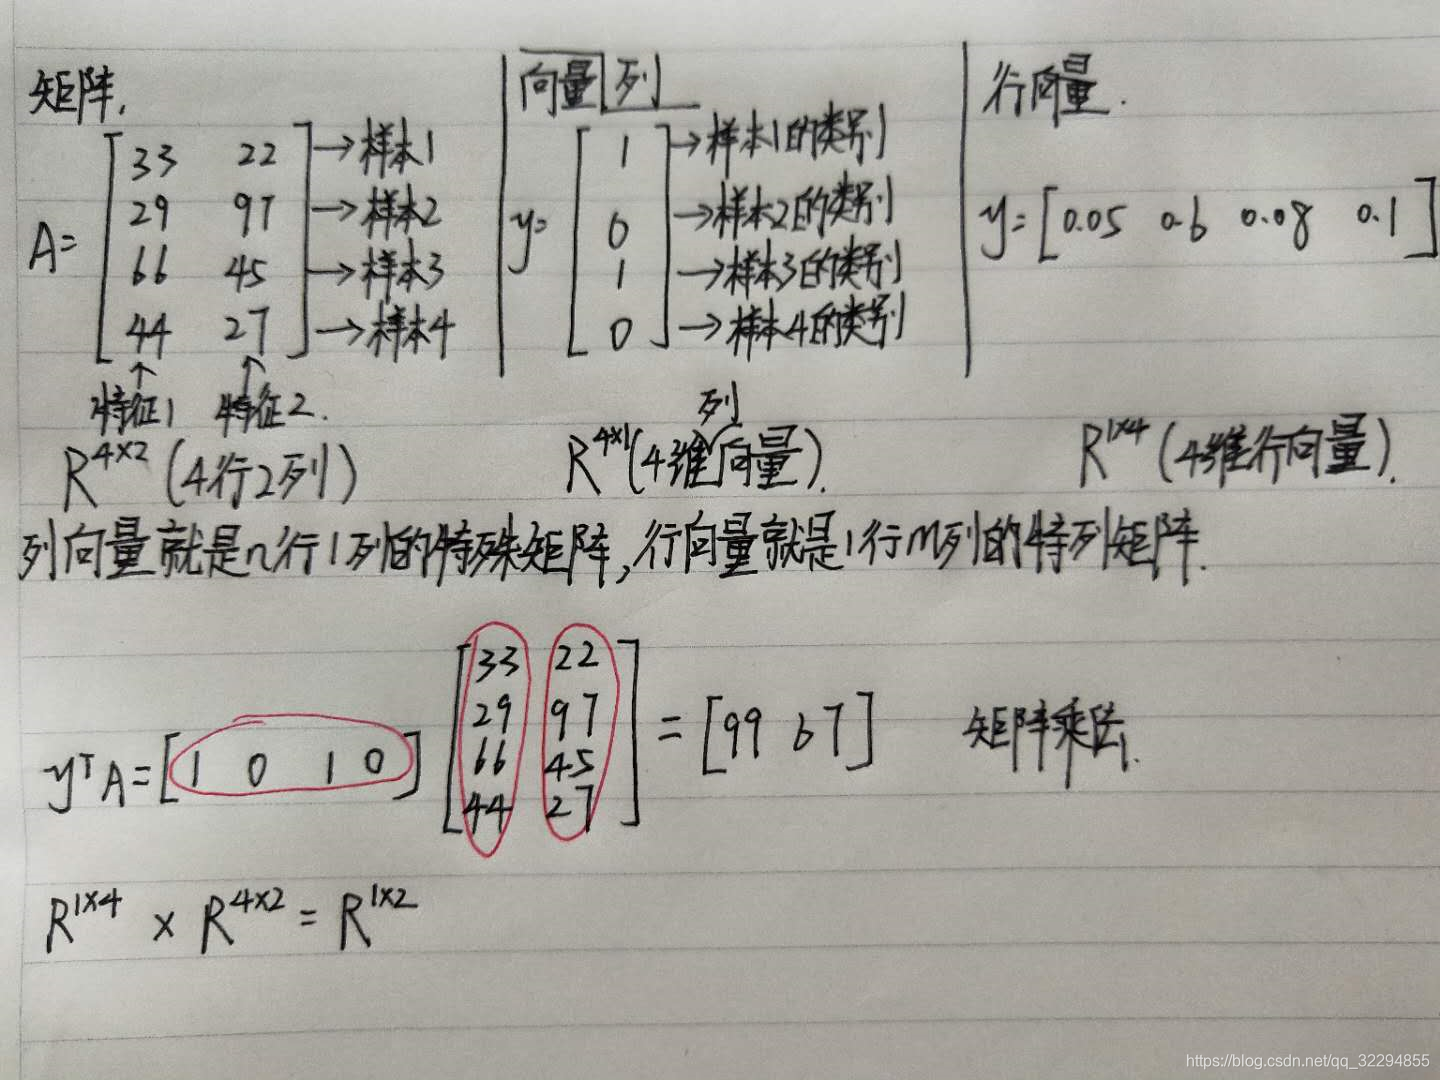 矩阵.
A= [33 22] →样本1
[29 97] →样本2
[66 45] →样本3
[44 27] →样本4
↑ ↑
特征1 特征2.
R^{4×2} (4行2列)
向量 列
y= [1] →样本1的类别
[0] →样本2的类别
[1] →样本3的类别
[0] →样本4的类别
列
R^{4×1}(4维向量).
行向量.
y= [0.05 0.6 0.08 0.1]
R^{1×4} (4维行向量).
列向量就是n行1列的特殊矩阵,行向量就是1行m列的特列矩阵.
y^T A = [1 0 1 0] [33 22
29 97
66 45
44 27] = [99 67] 矩阵乘法.
R^{1×4} × R^{4×2} = R^{1×2}
https://blog.csdn.net/qq_32294855